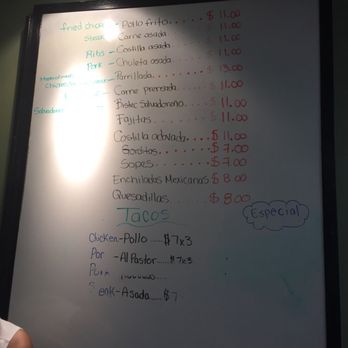 fried chicken - Pollo frito. $11.00
steak - Carne asada 11.00
Ribs - Costilla asada. 11.00
Pork - Chuleta asada $11.00
Parrillada $13.00
Carne preparada $11.00
Bistec Salvadoreño.. $11.00
Fajitas $11.00
Costilla adovada.. $11.00
Gorditas $7.00
Sopes $7.00
Enchiladas Mexicanas $8.00
Quesadillas $8.00
Tacos
Especial
Chicken - Pollo $7x3
Por - Al Pastor $7x3
Asada $7